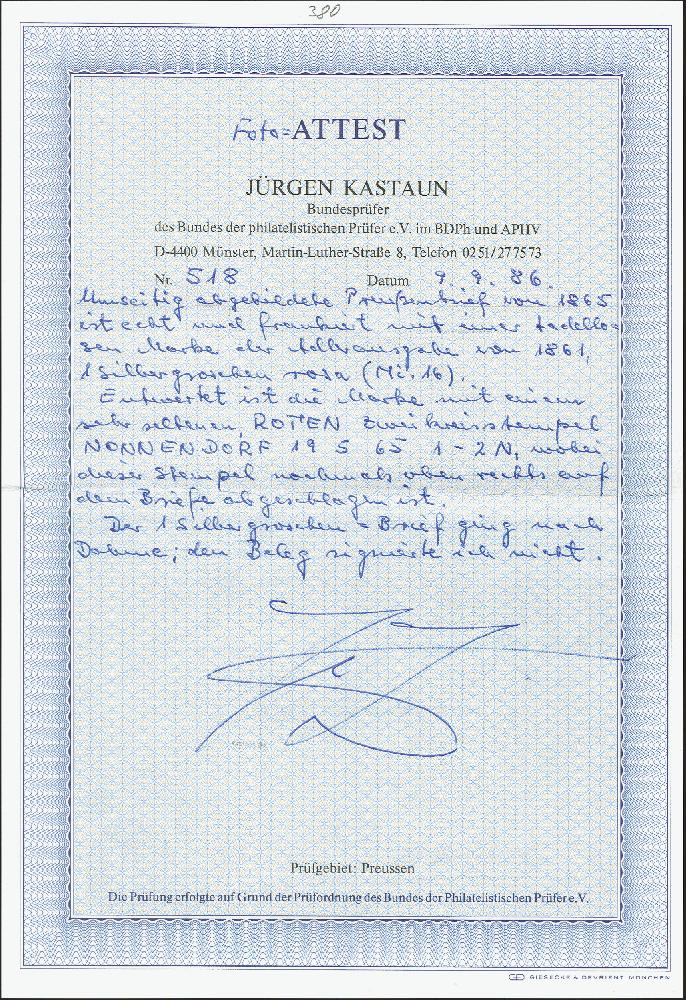 380
Foto=ATTEST
JÜRGEN KASTAUN
Bundesprüfer
des Bundes der philatelistischen Prüfer e.V. im BDPh und APHV
D-4400 Münster, Martin-Luther-Straße 8, Telefon 0251/277573
Nr. 518 Datum 9. 9. 86.
Umseitig abgebildete Preußenbrief vom 1865
ist echt und frankiert mit einer tadello-
sen Marke der Adlerausgabe von 1861,
1 Silbergroschen rosa (Mi. 16).
Entwertet ist die Marke mit einem
sehr seltenen, ROTEN Zweikreisstempel
NONNENDORF 19 5 65 1-2 N, wobei
dieser Stempel nochmals oben rechts auf
dem Briefe abgeschlagen ist.
Der 1 Silbergroschen-Brief ging nach
Dahme; den Beleg signierte ich nicht.
Prüfgebiet: Preussen
Die Prüfung erfolgte auf Grund der Prüfordnung des Bundes der Philatelistischen Prüfer e.V.
GIESECKE & DEVRIENT MÜNCHEN